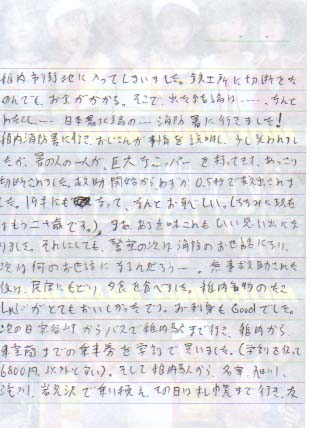 稚内市街地に入ってしまいました。鉄工所に切断をた
のんでも、お金がかかる。そこで、出た結論は‥‥、なんと
日本最北端の‥‥消防署に行きました!
稚内消防署に行き、おじさんが事情を説明し、少し笑われまし
たが、署の人の一人が、巨大なニッパーを持ってきて、あっさり
切断されました。救助開始からわずか0.5秒で救出されま
した。19才にも なって、なんとお恥しい。(
もう二十歳です。)まあ、ある意味これもいい思い出にな
りました。それにしても、警察の次は消防のお世話になり、
次は何のお世話になるんだろう‥。無事救助された
後は、民宿にもどり、夕食を食べました。稚内名物のたこ
しゃぶがとてもおいしかったです。お刺身もGoodでした。
次の日宗谷岬からバスで稚内駅まで行き、稚内から
東室蘭までの乗車券を学割で買いました。(学割を使って
6800円、以外と)。そして稚内駅から、名寄、旭川、
滝川、岩見沢で乗り換え、その日は札幌まで行き、友